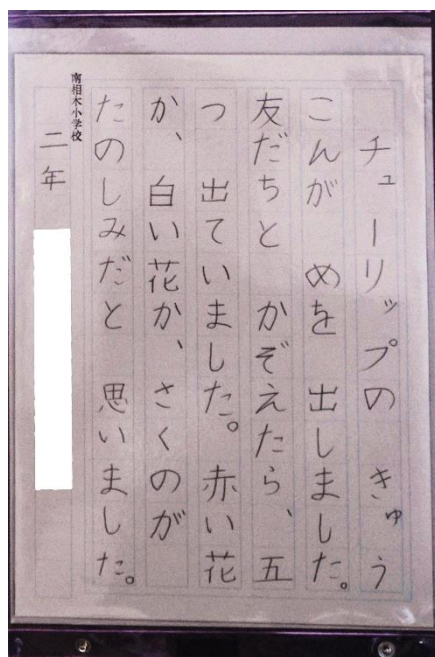 チューリップの　きゅう
こんが　めを　出しました。
友だちと　かぞえたら、五
つ　出ていました。赤い花
か、白い花か、さくのが
たのしみだと　思いました。
南相木小学校
二年